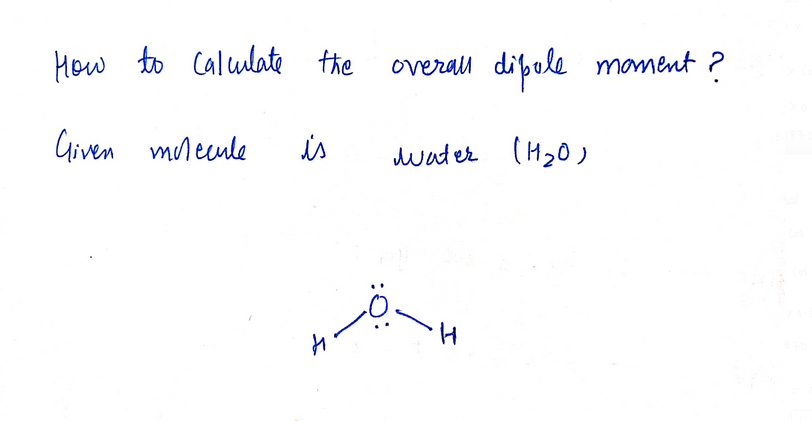 How to calculate the overall dipole moment?
Given molecule is water (H2O)
O
H H